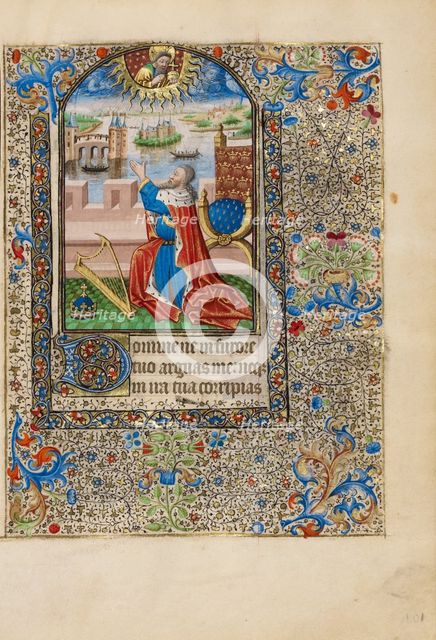 Domine ne in furore
tuo arguas me neq3
in ira tua corripias
Heritage
Heritage
Heritage
Heritage
Heritage
Heritage
101